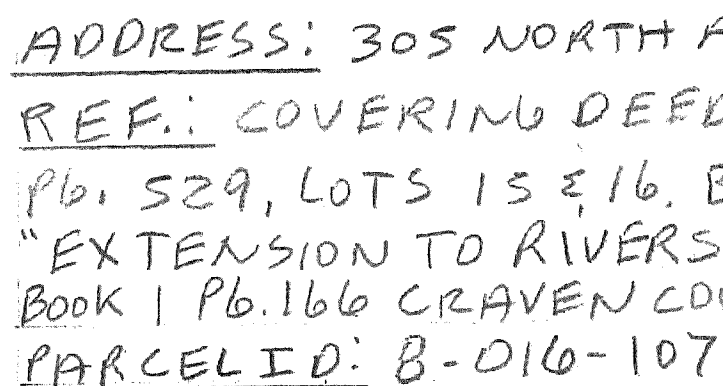 ADDRESS: 305 NORTH
REF.: COVERING DEED
PG. 529, LOTS 15 & 16.
"EXTENSION TO RIVERS
BOOK 1 PG.166 CRAVEN COU
PARCEL ID: 8-016-107